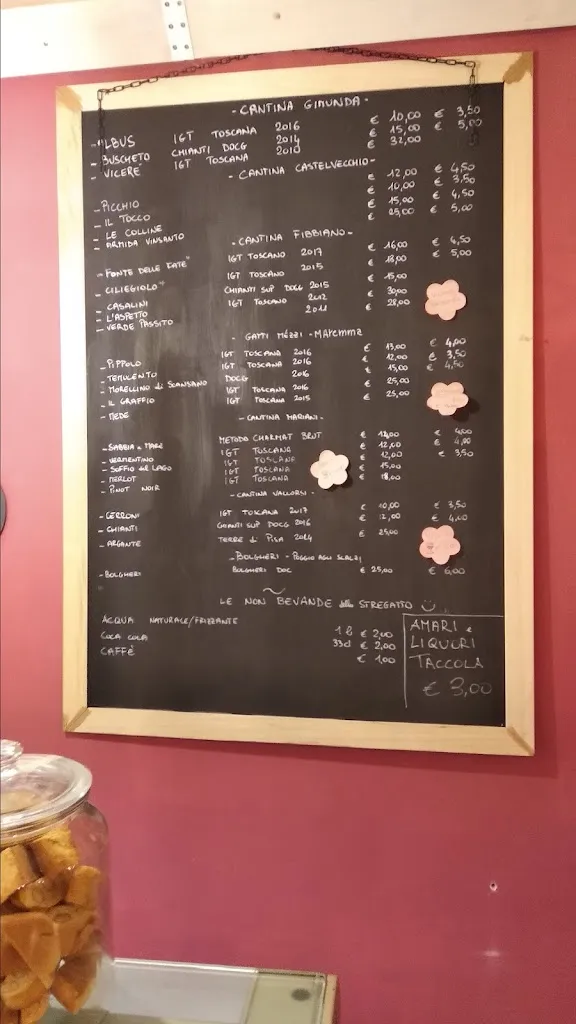 - CANTINA GIMUNDA -
- ALBUS IGT TOSCANA 2016 € 10,00 € 3,50
- BUSCHETO CHIANTI DOCG 2014 € 15,00 € 5,00
- VICERE' IGT TOSCANA 2010 € 32,00
- CANTINA CASTELVECCHIO -
- PICCHIO € 12,00 € 4,50
- IL TOCCO € 10,00 € 3,50
- LE COLLINE € 15,00 € 4,50
- ARMIDA VINSANTO € 25,00 € 5,00
- CANTINA FIBBIANO -
- FONTE DELLE FATE" IGT TOSCANO 2017 € 16,00 € 4,50
- CILIEGIOLO" IGT TOSCANO 2015 € 18,00 € 5,00
- CASALINI CHIANTI SUP DOCG 2015 € 15,00
- L'ASPETTO IGT TOSCANO 2012 € 30,00
- VERDE PASSITO 2011 € 28,00
- GATTI MÉZZI - MAremma
- PIPPOLO IGT TOSCANA 2016 € 13,00 € 4,00
- TEMULENTO IGT TOSCANA 2016 € 12,00 € 3,50
- MORELLINO di SCANSANO DOCG 2016 € 15,00 € 4,50
- IL GRAFFIO IGT TOSCANA 2016 € 25,00
- MEDE IGT TOSCANA 2015 € 25,00
- CANTINA MARIANI -
- SABBIA e MARE METODO CHARMAT BRUT € 14,00 € 4,00
- VERMENTINO IGT TOSCANA € 12,00 € 4,00
- SOFFIO del LAGO IGT TOSCANE € 12,00 € 3,50
- MERLOT IGT TOSCANA € 15,00
- PINOT NOIR IGT TOSCANA € 18,00
- CANTINA VALLORSI -
- CERRONI IGT TOSCANA 2017 € 10,00 € 3,50
- CHIANTI CHIANTI SUP DOCG 2016 € 12,00 € 4,00
- ARGANTE TERRE di PISA 2014 € 25,00
- BOLGHERI - POGGIO AGLI SCALZI
- BOLGHERI BOLGHERI DOC € 25,00 € 6,00
LE NON BEVANDE dello STREGATTO
ACQUA NATURALE/FRIZZANTE 1 l € 2,00
COCA COLA 33cl € 2,00
CAFFÈ € 1,00
AMARI e
LIQUORI
TACCOLA
€ 3,00